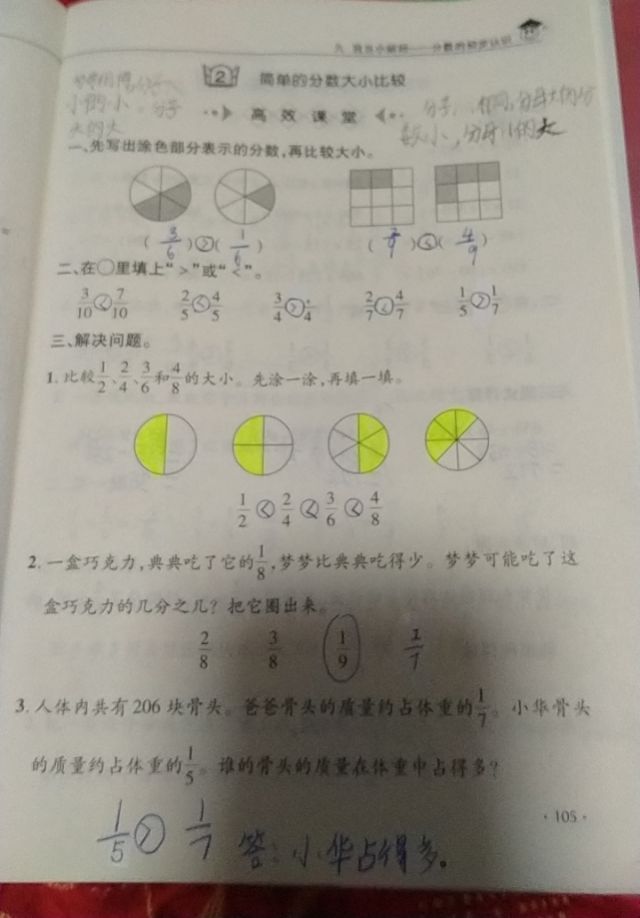 九 我当小厨师——分数的初步认识
2 简单的分数大小比较
小的小。分子
大的大
高效课堂
分子相同,分母大的分
数小,分母小的大
一、先写出涂色部分表示的分数,再比较大小。
( 3/6 ) > ( 1/6 ) ( 2/9 ) < ( 4/9 )
二、在○里填上“>”或“<”。
3/10 < 7/10 2/5 < 4/5 3/4 > 1/4 2/7 < 4/7 1/5 > 1/7
三、解决问题。
1. 比较1/2、2/4、3/6和4/8的大小。先涂一涂,再填一填。
1/2 < 2/4 < 3/6 < 4/8
2. 一盒巧克力,典典吃了它的1/8,梦梦比典典吃得少。梦梦可能吃了这
盒巧克力的几分之几?把它圈出来。
2/8 3/8 1/9 1/7
3. 人体内共有206块骨头。爸爸骨头的质量约占体重的1/7。小华骨头
的质量约占体重的1/5。谁的骨头的质量在体重中占得多?
1/5 > 1/7 答:小华占得多。
·105·